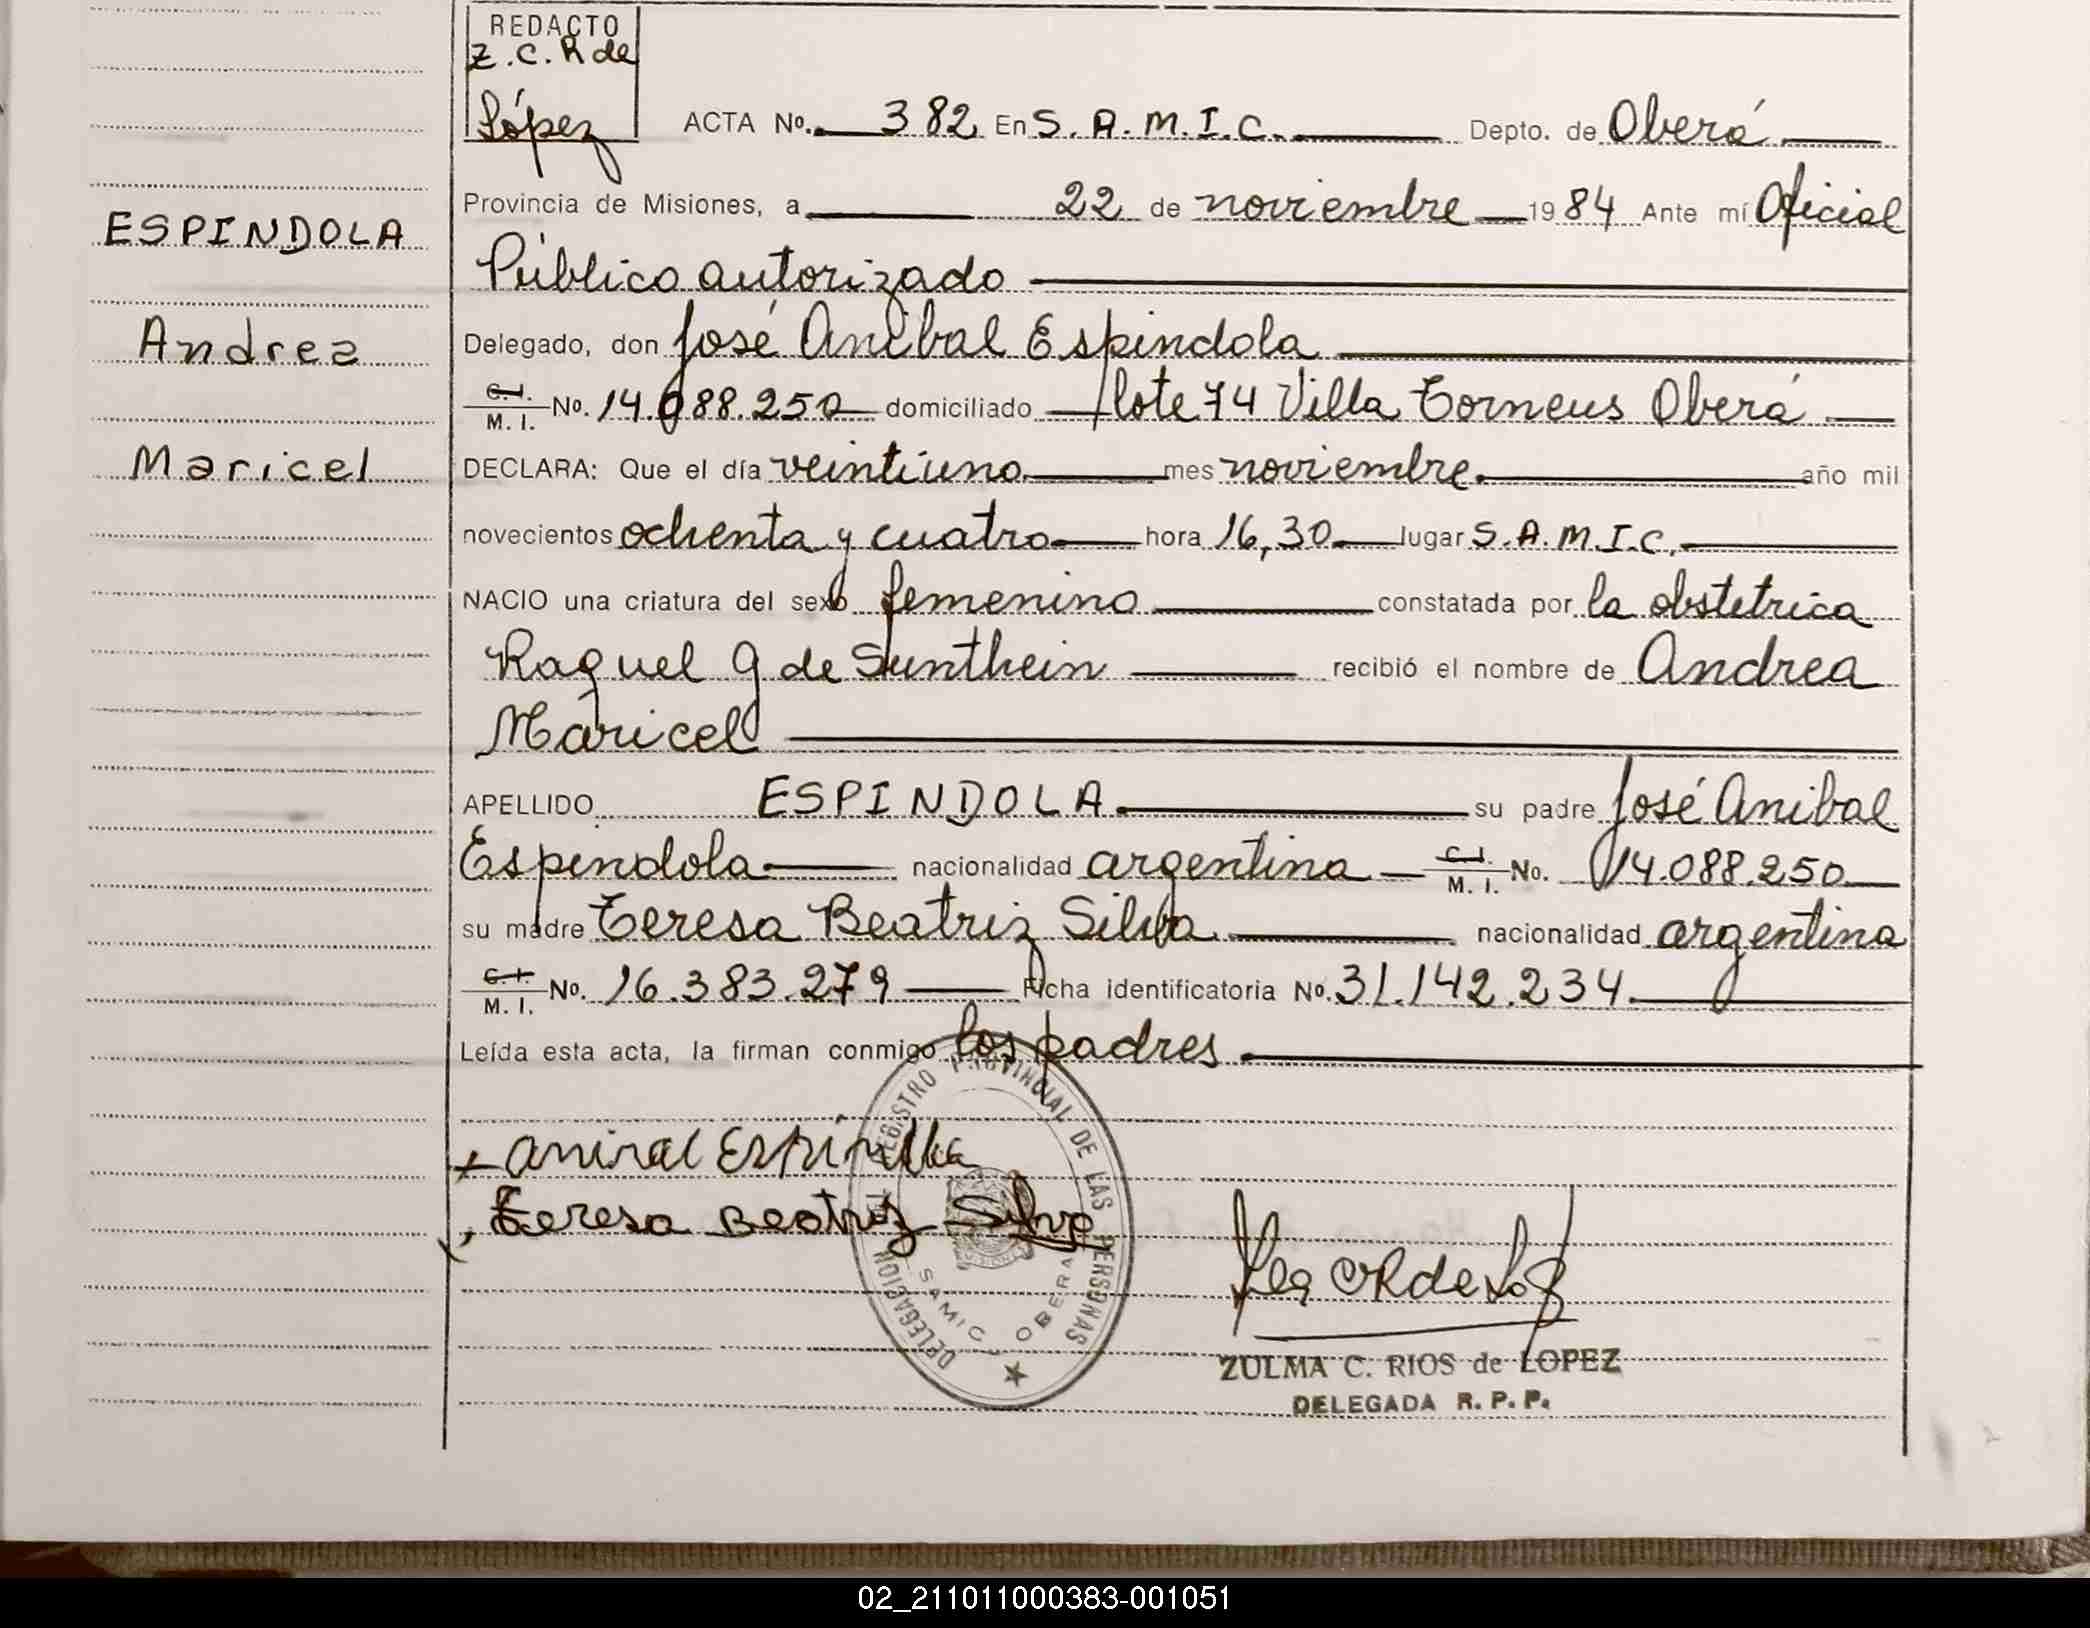 REDACTO
Z.C.R de
López
ACTA No. 382 En S.A.M.I.C. Depto. de Oberá
Provincia de Misiones, a 22 de noviembre 1984 Ante mí Oficial
Público autorizado
Delegado, don José Anibal Espindola
C.I. M.I. No. 14.088.250 domiciliado lote 74 Villa Torneus Oberá
DECLARA: Que el día veintiuno mes noviembre. año mil
novecientos ochenta y cuatro hora 16,30 lugar S.A.M.I.C.
NACIO una criatura del sexo femenino constatada por la obstetrica
Raquel G de Sunthein recibió el nombre de Andrea
Maricel
APELLIDO ESPINDOLA su padre José Anibal
Espindola nacionalidad argentina C.I. M.I. No. 14.088.250
su madre Teresa Beatriz Silva nacionalidad argentina
C.I. M.I. No. 16.383.279 Ficha identificatoria No. 31.142.234
Leída esta acta, la firman conmigo los padres
ESPINDOLA
Andrea
Maricel
Teresa Beatriz Silva
REGISTRO PROVINCIAL DE LAS PERSONAS
DELEGACION
SAMIC - OBERA
ZULMA C. RIOS de LOPEZ
DELEGADA R.P.P.
02_211011000383-001051